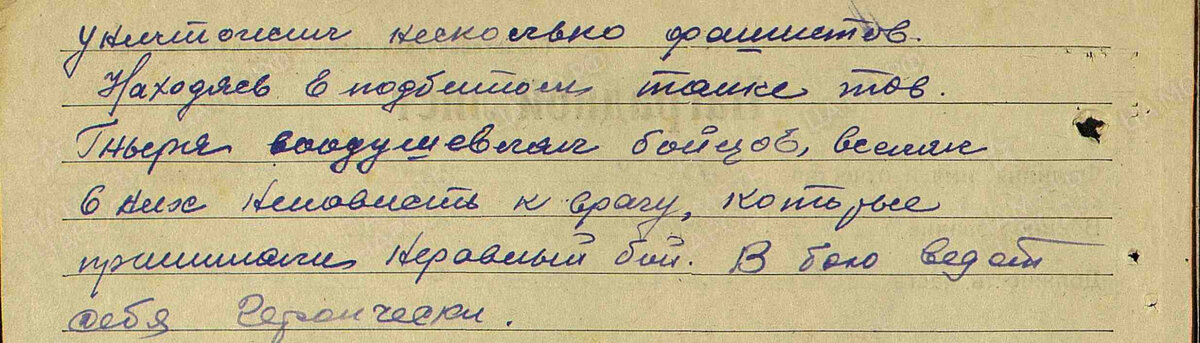 уничтожил несколько фашистов.
Находясь в подбитом танке тов.
Гныря воодушевлял бойцов, вселяя
в них ненависть к врагу, которые
принимали неравный бой. В бою ведет
себя героически.